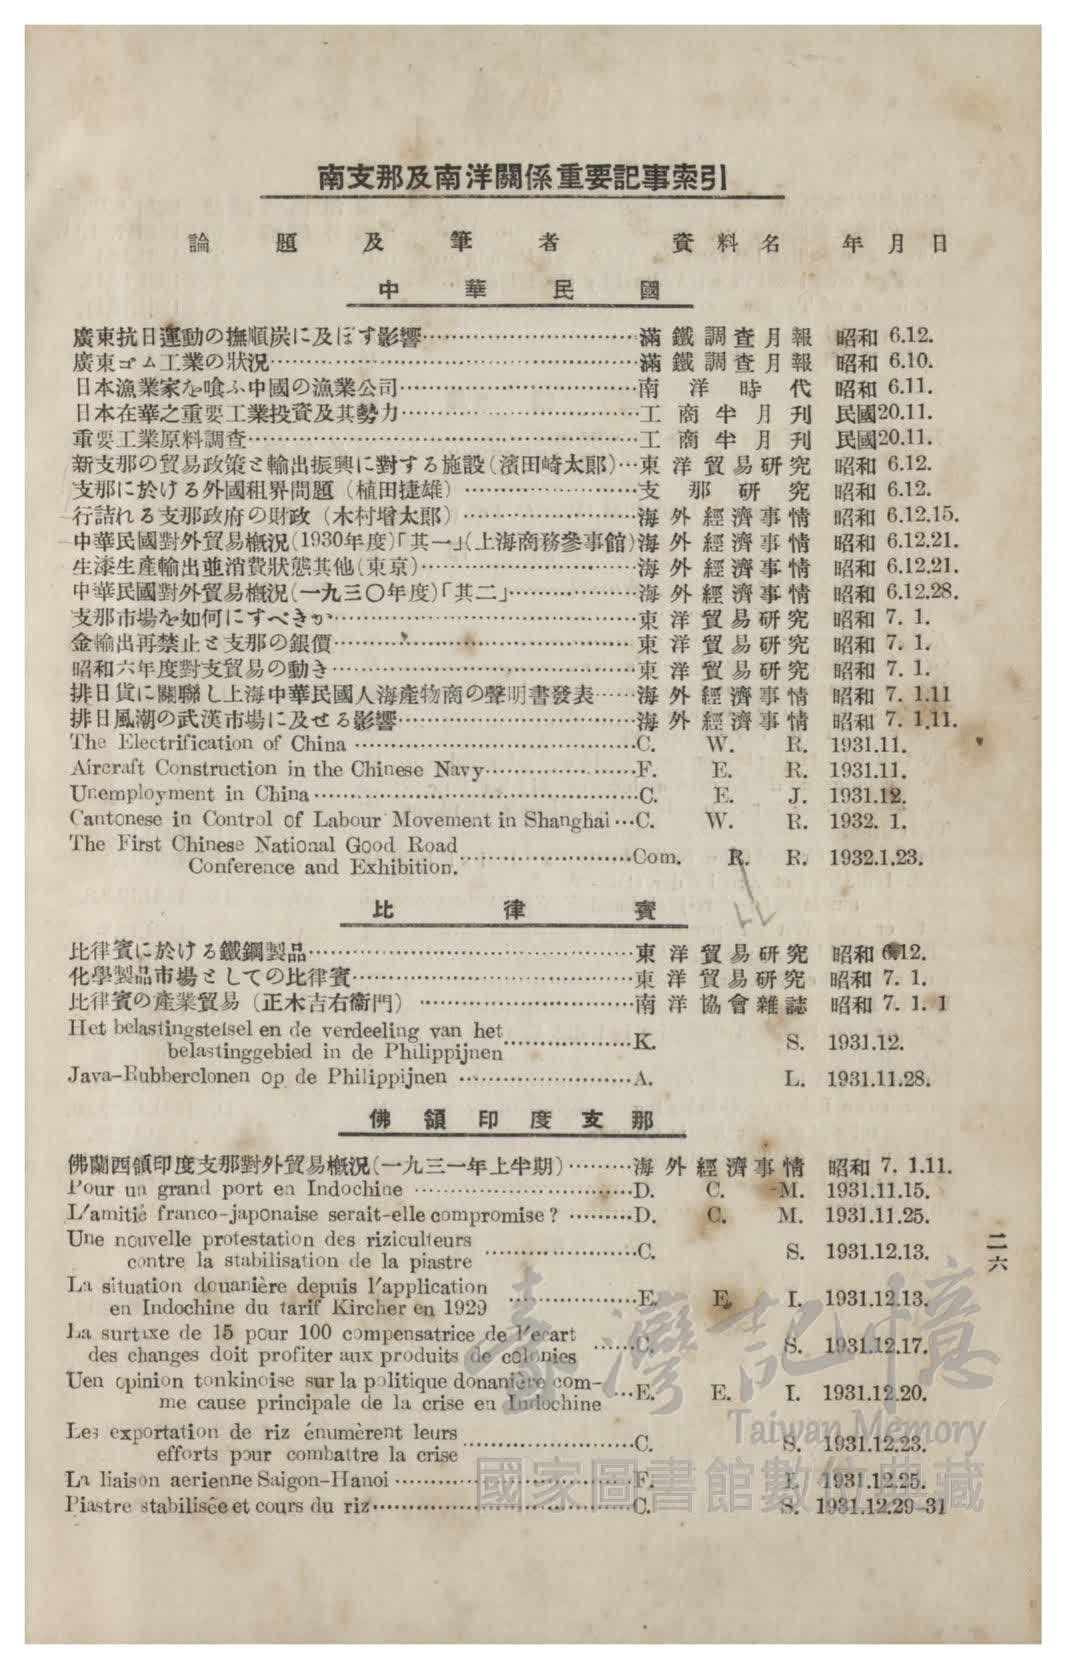 南支那及南洋關係重要記事索引
論題及筆者 資料名 年月日
中華民國
廣東抗日運動の撫順炭に及ぼす影響……滿鐵調査月報 昭和 6.12.
廣東ゴム工業の狀況……滿鐵調査月報 昭和 6.10.
日本漁業家を喰ふ中國の漁業公司……南洋時代 昭和 6.11.
日本在華之重要工業投資及其勢力……工商半月刊 民國20.11.
重要工業原料調查……工商半月刊 民國20.11.
新支那の貿易政策と輸出振興に對する施設(濱田崎太郞)…東洋貿易研究 昭和 6.12.
支那に於ける外國租界問題(植田捷雄)……支那研究 昭和 6.12.
行詰れる支那政府の財政(木村增太郞)……海外經濟事情 昭和 6.12.15.
中華民國對外貿易槪況(1930年度)「其一」(上海商務參事館)海外經濟事情 昭和 6.12.21.
生漆生產輸出並消費狀態其他(東京)……海外經濟事情 昭和 6.12.21.
中華民國對外貿易槪況(一九三〇年度)「其二」……海外經濟事情 昭和 6.12.28.
支那市場を如何にすべきか……東洋貿易研究 昭和 7. 1.
金輸出再禁止と支那の銀價……東洋貿易研究 昭和 7. 1.
昭和六年度對支貿易の動き……東洋貿易研究 昭和 7. 1.
排日貨に關聯し上海中華民國人海產物商の聲明書發表……海外經濟事情 昭和 7. 1.11
排日風潮の武漢市場に及せる影響……海外經濟事情 昭和 7. 1.11.
The Electrification of China……C. W. R. 1931.11.
Aircraft Construction in the Chinese Navy……F. E. R. 1931.11.
Unemployment in China……C. E. J. 1931.12.
Cantonese in Control of Labour Movement in Shanghai…C. W. R. 1932. 1.
The First Chinese National Good Road
Conference and Exhibition.……Com. R. R. 1932.1.23.
比律賓
比律賓に於ける鐵鋼製品……東洋貿易研究 昭和 6.12.
化學製品市場としての比律賓……東洋貿易研究 昭和 7. 1.
比律賓の產業貿易(正木吉右衞門)……南洋協會雜誌 昭和 7. 1. 1
Het belastingstelsel en de verdeeling van het
belastinggebied in de Philippijnen……K. S. 1931.12.
Java-Rubberclonen op de Philippijnen……A. L. 1931.11.28.
佛領印度支那
佛蘭西領印度支那對外貿易槪況(一九三一年上半期)……海外經濟事情 昭和 7. 1.11.
Pour un grand port en Indochine……D. C. M. 1931.11.15.
L'amitié franco-japonaise serait-elle compromise?……D. C. M. 1931.11.25.
Une nouvelle protestation des riziculteurs
contre la stabilisation de la piastre……C. S. 1931.12.13.
La situation douanière depuis l'application
en Indochine du tarif Kircher en 1929……E. E. I. 1931.12.13.
La surtaxe de 15 pour 100 compensatrice de l'ecart
des changes doit profiter aux produits de colonies……C. S. 1931.12.17.
Uen opinion tonkinoise sur la politique donanière com-
me cause principale de la crise en Indochine…E. E. I. 1931.12.20.
Les exportation de riz énumèrent leurs
efforts pour combattre la crise……C. S. 1931.12.23.
La liaison aerienne Saigon-Hanoi……F. I. 1931.12.25.
Piastre stabilisée et cours du riz……C. S. 1931.12.29-31
二六
臺灣記憶
Taiwan Memory
國家圖書館數位典藏